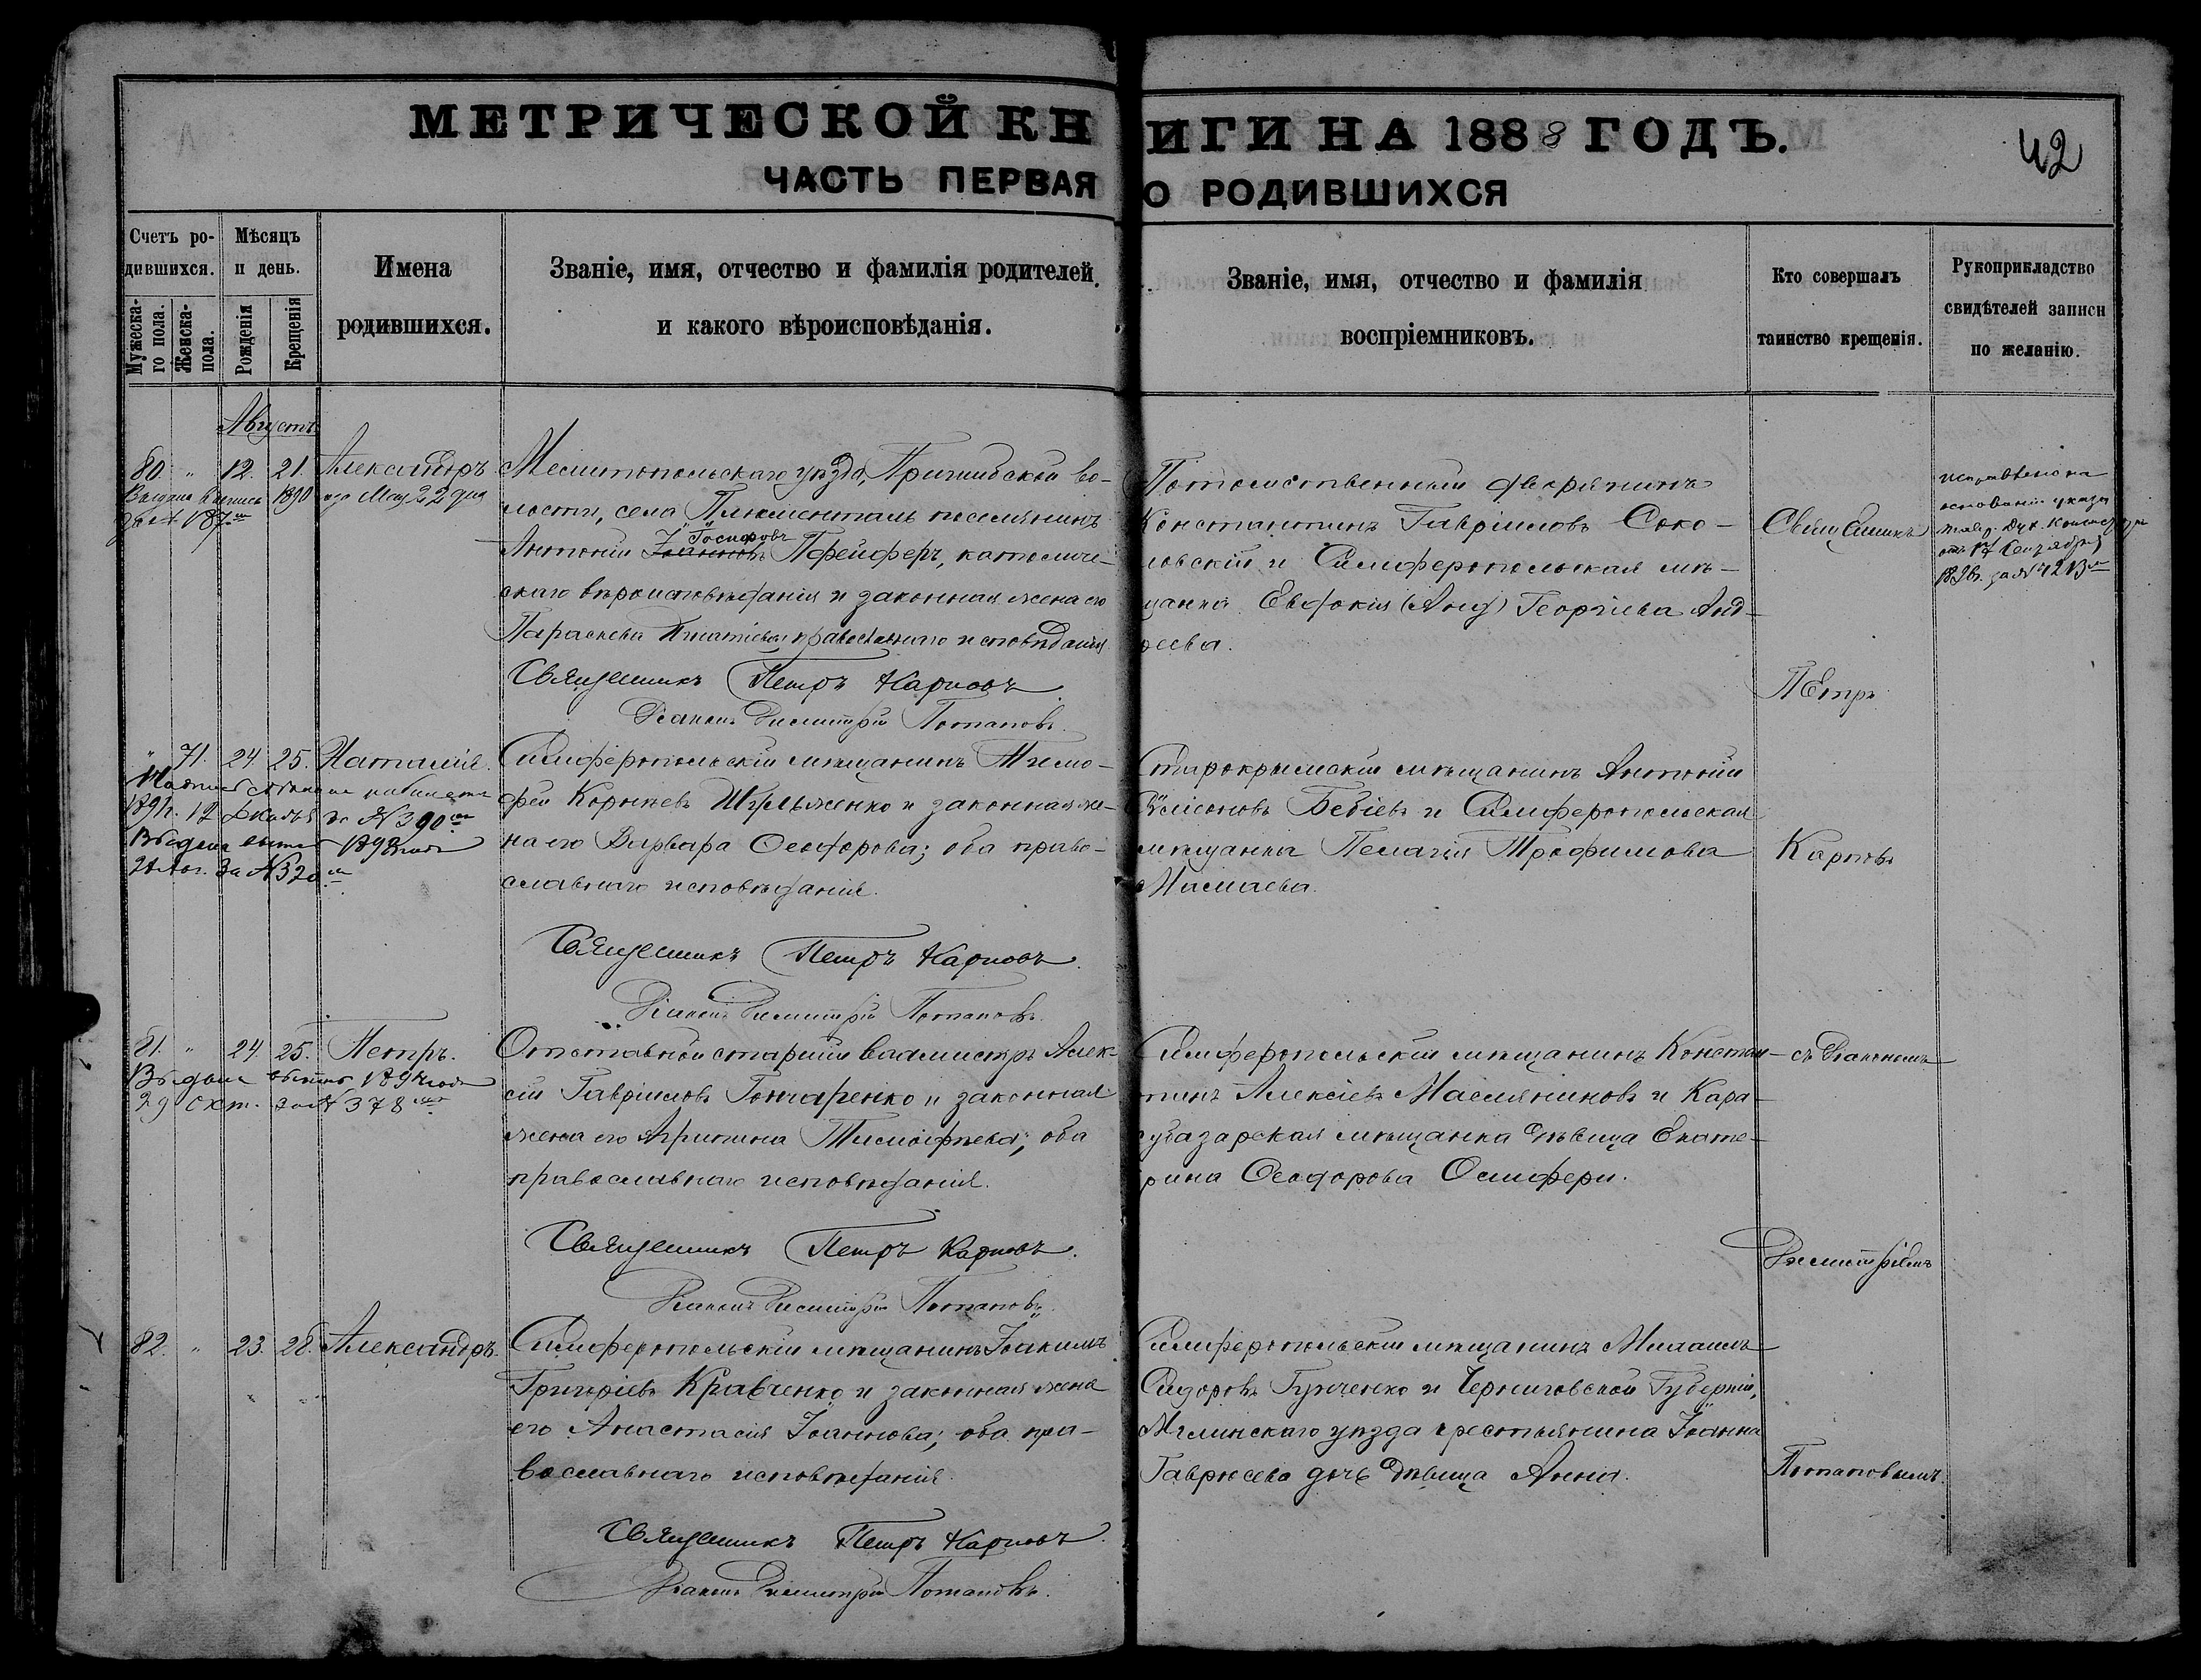 МЕТРИЧЕСКОЙ КНИГИ НА 1888 ГОДЪ.
42
ЧАСТЬ ПЕРВАЯ О РОДИВШИХСЯ
Счетъ родившихся.
Мужескаго пола.
Женскапола.
Мѣсяцъ и день.
Рожденія
Крещенія
Имена
родившихся.
Званіе, имя, отчество и фамилія родителей.
и какого вѣроисповѣданія.
Званіе, имя, отчество и фамилія
воспріемниковъ.
Кто совершалъ
таинство крещенія.
Рукоприкладство
свидѣтелей записи
по желанію.
Августъ
80. " 12. 21. Александръ
1890 года Мая 22 дня
за № 187
Мелитопольскаго уѣзда, Пришибской во-
лости, села поселянинъ
Іосифовъ
Антоній Іоанновъ Пфейферъ, католиче-
скаго вѣроисповѣданія и законная жена его
Параскева Игнатіева православнаго исповѣданія
Священникъ Петръ Карповъ
Діаконъ Димитрій Потаповъ.
Потомственный дворянинъ
Константинъ Гавріиловъ Соко-
ловскій и Симферопольская мѣ-
щанка Евдокія Георгіева Анд-
реева.
Священникъ
Петръ
Карповъ
съ Діакономъ
Димитріемъ
Потаповымъ.
исправлено на
основаніи указа
Тавр. Дух. Консисторіи
отъ 17 Сентября
" 71. 24. 25. Наталія.
за № 390
Выдана 1898 года
за № 320
Симферопольскій мѣщанинъ Тимо-
фей Корнѣевъ Шульженко и законная же-
на его Варвара Ѳеодорова; оба право-
славнаго исповѣданія.
Священникъ Петръ Карповъ.
Діаконъ Димитрій Потаповъ.
Старокрымскій мѣщанинъ Антоній
Бебіевъ и Симферопольская
мѣщанка Пелагія Трофимова
Мамаева.
81. " 24. 25. Петръ.
Выдана выпись 1894 года
29 Окт. за № 378
Отставной старшій вахмистръ Алек-
сій Гавріиловъ Гончаренко и законная
жена его Агрипина Тимофѣева; оба
православнаго исповѣданія.
Священникъ Петръ Карповъ.
Діаконъ Димитрій Потаповъ.
Симферопольскій мѣщанинъ Констан-
тинъ Алексіевъ Масляниновъ и Кара-
субазарская мѣщанка дѣвица Екате-
рина Ѳеодорова
82. " 23. 28. Александръ.
Симферопольскій мѣщанинъ Іоакимъ
Григоріевъ Кравченко и законная жена
его Анастасія Іоаннова; оба пра-
вославнаго исповѣданія.
Священникъ Петръ Карповъ.
Діаконъ Димитрій Потаповъ.
Симферопольскій мѣщанинъ Михаилъ
Сидоровъ и Черниговской Губерніи,
Мглинскаго уѣзда крестьянина Іоанна
Гаврюсева дочь дѣвица Анна.